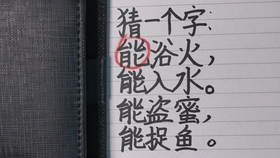 猜一个字:
能浴火,
能入水。
能盗蜜,
能捉鱼。